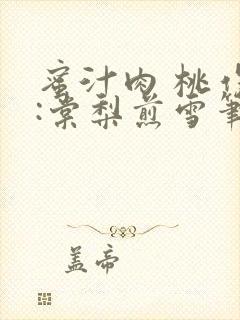 蜜汁肉桃作
:棠梨煎雪筆
盖帝